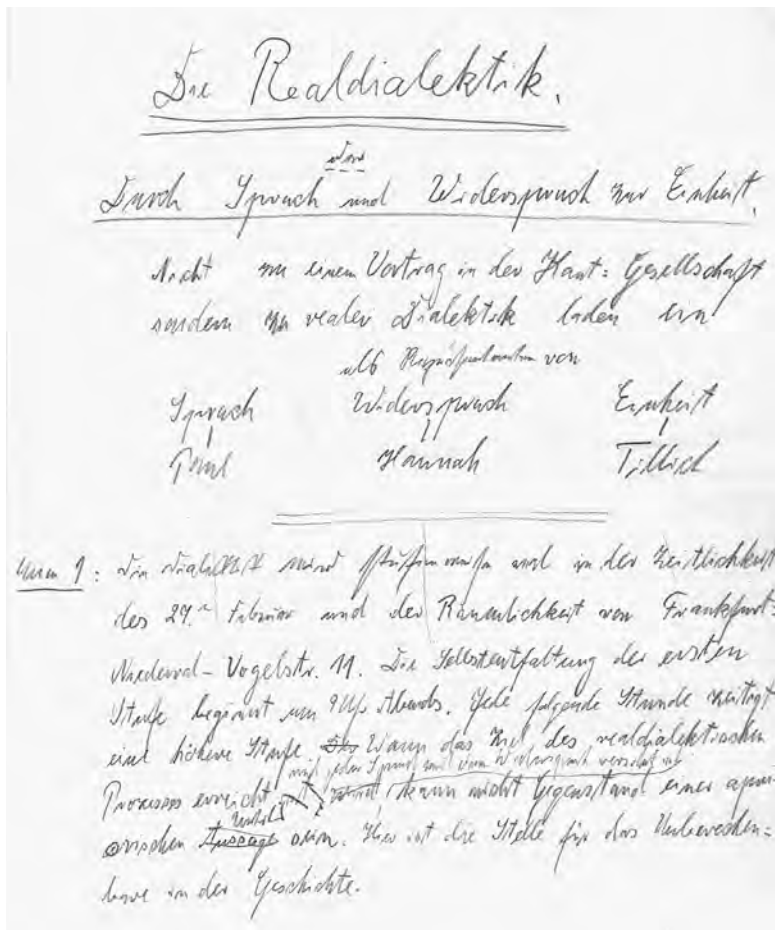 Die Realdialektik.
Durch Spruch und Widerspruch zur Einheit.
Nicht zu einem Vortrag in der Kant=Gesellschaft
sondern zu realer Dialektik laden ein
als Repräsentanten von
Spruch Widerspruch Einheit
Paul Hannah Tillich
Anm 1: Die Dialektik wird stufenweise und in der Zeitlichkeit
des 29. Februar und der Räumlichkeit von Frankfurt=
Niederrad-Vogelstr. 11. Die Selbstentfaltung der ersten
Stufe beginnt um 9 Uhr Abends. Jede folgende Stunde zeitigt
eine höhere Stufe. Wann das Ziel des realdialektischen
und jeder Spruch mit dem Widerspruch versöhnt ist
Prozesses erreicht kann nicht Gegenstand einer apri=
Urteils
orischen Aussage sein. Hier ist die Stelle für das Unberechen=
bare in der Geschichte.